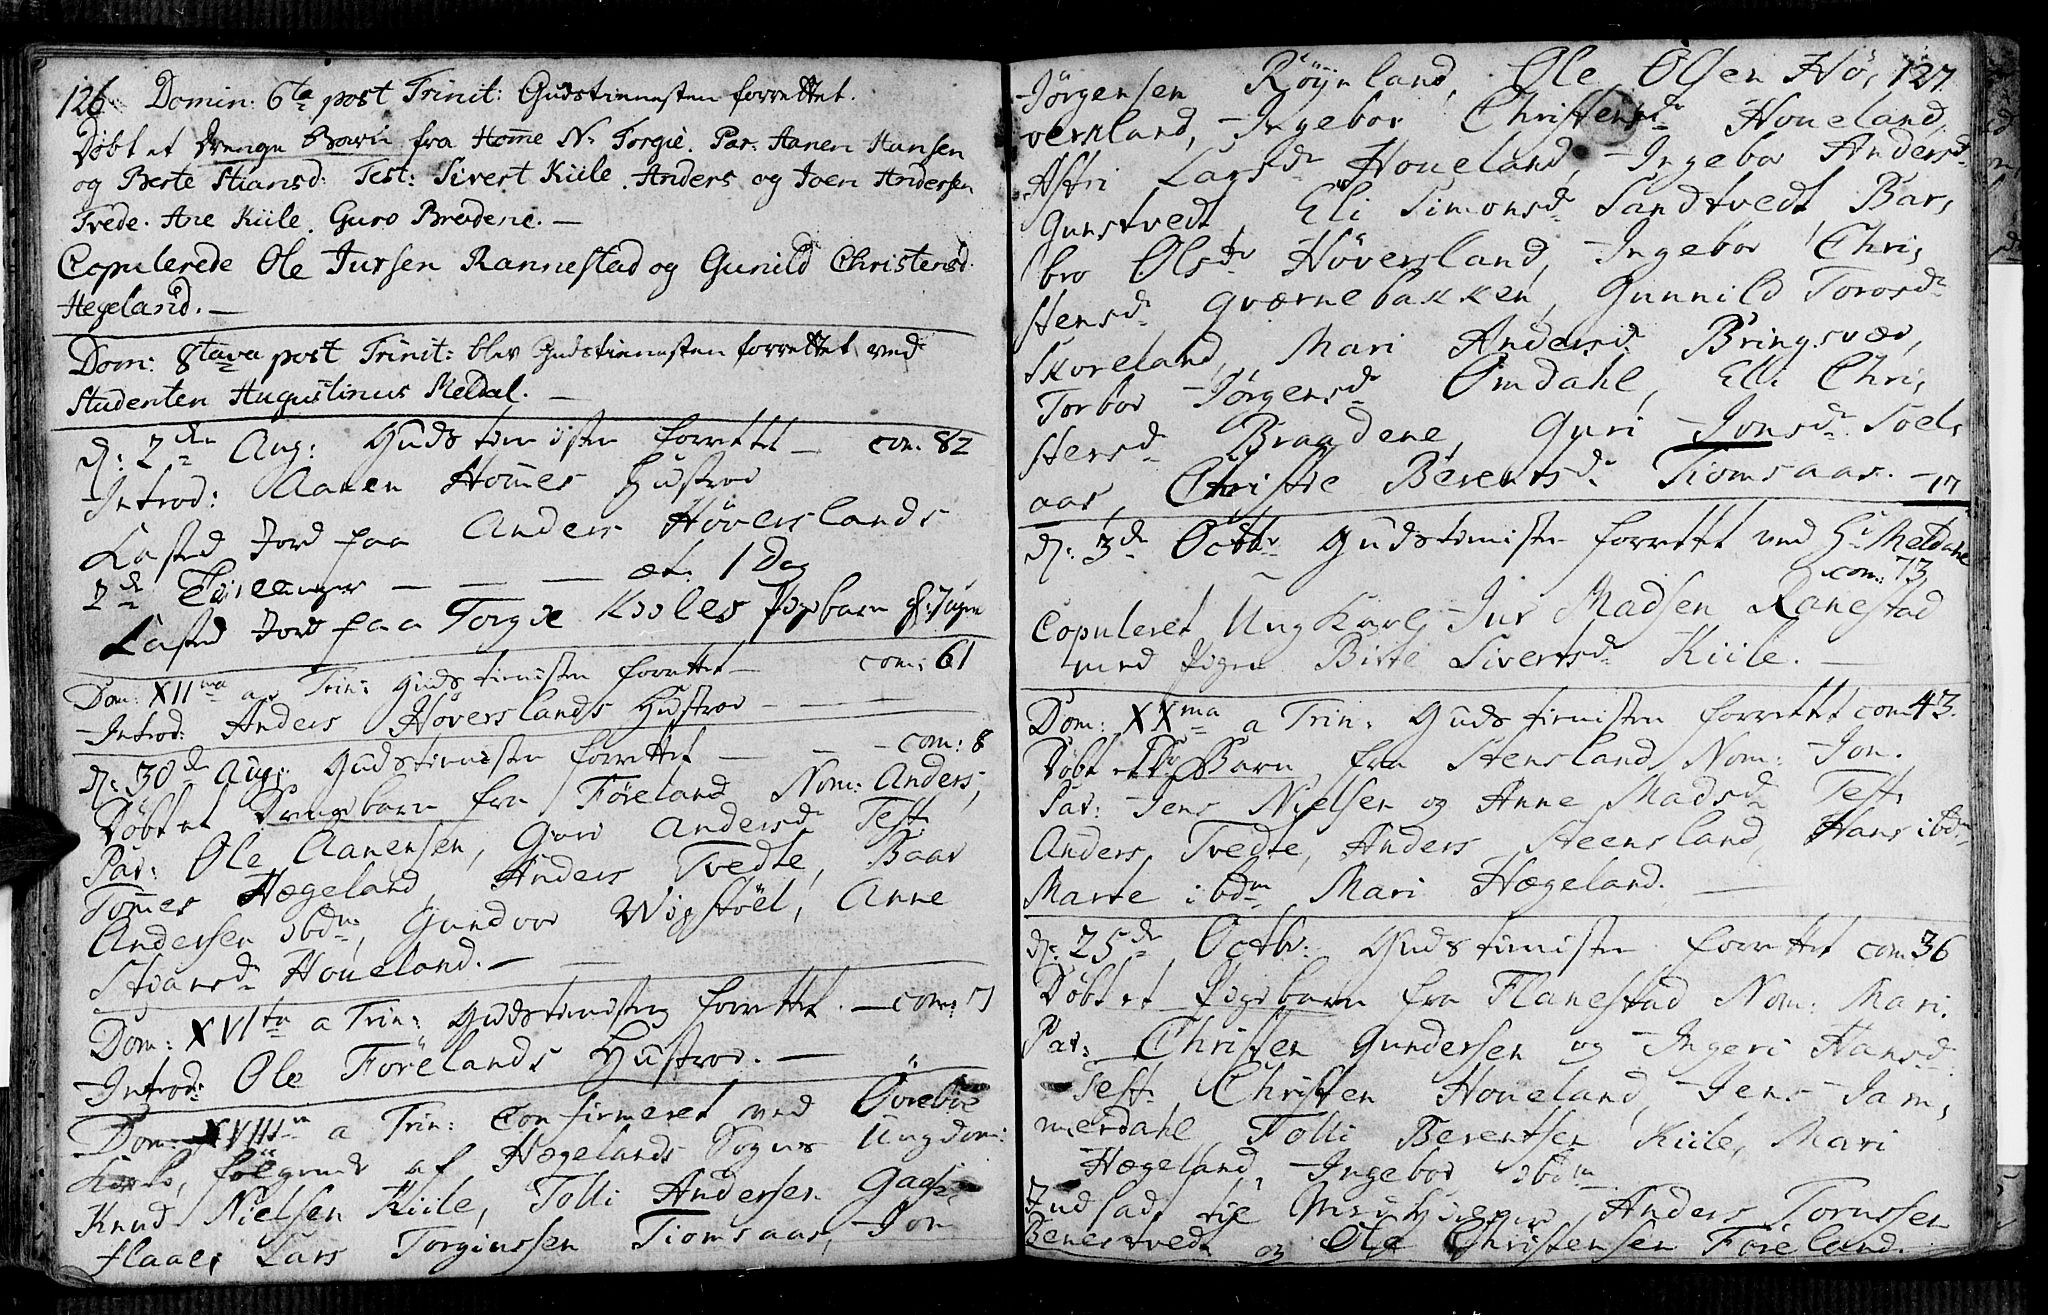 126. Domin: 6ta post Trinit: Gudstienesten forrettet.
Döbt et Drenge Barn fra Home N: Torgie. Par: Aanen Hansen
og Berte Stiansd: Test: Sivert Kiile. Anders og Joen Andersen
Tvede. Ane Kiile. Guro Breodene. —
Copulerede Ole Jursen Rannestad og Gunild Christensd.
Hegeland. —
Dom: 8tava post Trinit: blev Gudstienesten forrettet ved
Studenten Augustinus Meldal. —
d: 2den Aug: Gudstienisten forrettet — com. 82
Introd: Aanen Homes Hustroe
Kasted Jord paa Anders Höverslands
2de Tvillinger — — — æt. 1 Dag
Kasted Jord paa Torgie Kiiles Pigebarn
Dom: XIIma a Trin: Gudstienisten forrettet — com: 61
Introd: Anders Höverslands Hustroe — — —
d: 30de Aug: Gudstienesten forrettet — — com: 8
Döbt et Drengebarn fra Föreland Nom: Anders,
Par: Ole Aanensen, Guro Andersdr Test:
Tomes Hægeland, Anders Tvedte, Baar
Andersen ibdm, Gundvor Wigstöel, Anne
Stiansdr Houeland. — —
Dom: XVIta a Trin: Gudstienisten forrettet. — com: 7
Introd: Ole Förelands Hustroe. —
Dom XVIII a Trin: Confirmeret ved Övreböe
Kirke, fölgende af Hægelands Sogns Ungdom:
Knud Nielsen Kiile, Tolli Andersen Gaase
flaae, Lars Torgiussen Tiomsaas, Jon
127.
Jörgensen Röynland, Ole Olsen Hö,
versland, Ingebor Christensdr Houeland,
Astri Larsdr Houeland, Ingebor Andersdr
Gunstvedt, Eli Simonsdr Sandtvedt, Bar,
bro Olsdr Höversland, Ingebor Chri,
stensdr Qværnebakken, Gunnild Torosdr
Skoreland, Mari Andersdr Bringsvær,
Torbor Jörgensdr Omdahl, Elli Chri,
stensdr Braadene, Guri Jonsdr Soel,
aas, Christie Berentsdr Tiomsaas. — 17
d: 3de Octbr Gudstienisten forrettet ved Hr Meldahl
com: 73
Copuleret Ungkarl Jur Madsen Ranestad
med Pigen Birte Sivertsdr Kiile. —
Dom: XXma a Trin: Gudstienisten forrettet com 43.
Döbt et Barn fra Stensland Nom: Jon.
Par: Jens Nielsen og Anne Madsdr Test:
Anders Tvedte, Anders Steensland, Hans ibdm
Marte ibdm Mari Hægeland. —
d: 25de Octbr: Gudstienisten forrettet com: 36
Döbt et Pigebarn fra Flanestad Nom: Mari.
Par: Christen Gundersen og Ingeri Hansdr
Test: Christen Houeland, Jens Jam,
merdahl, Tolli Berentsen Kiile, Mari
Hægeland, Ingebor ibdm
Indsadt til Anders Torussen
Benestvedt og Ole Christensen Föreland.